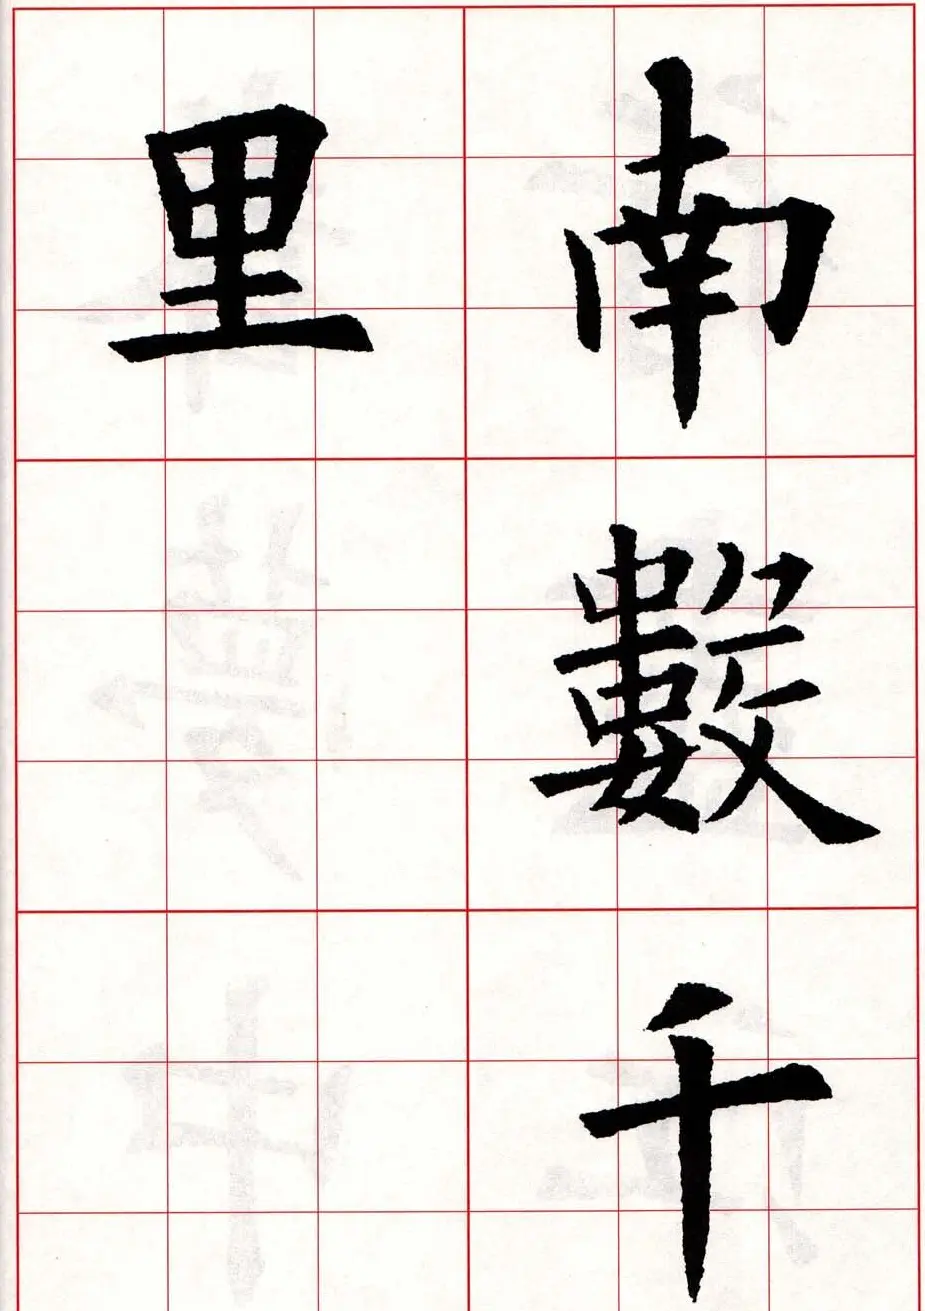 南數千
里